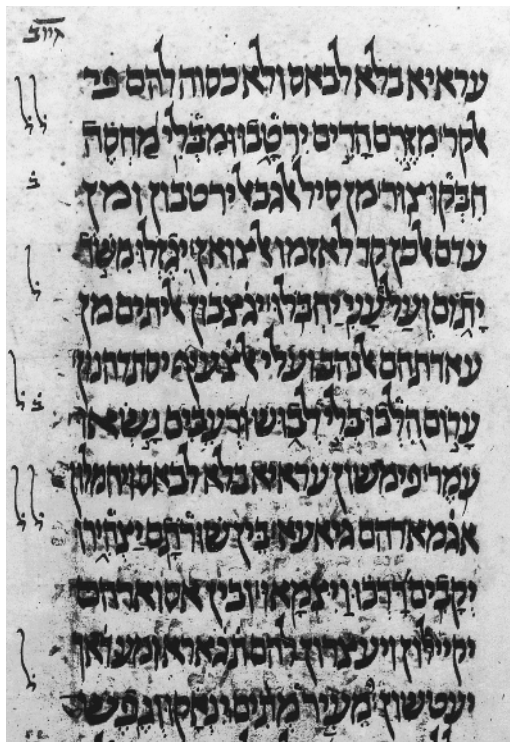 איוב
עראיא בלא לבאס ולא כסוה להם פי
אלקר מִזֶּרֶם הָרִים יִרְטָבוּ וּמִבְּלִי מַחְסֶה
חִבְּקוּ צוּר מן סיל אלגבאל ירטבון ומן
עדם אלכן קד לאזמו אלצואן יִגְזְלוּ מִשֹּׁד
יָתוֹם וְעַל עָנִי יַחְבֹּלוּ ויגצבון אליתים מן
עאדתהם אלנהב ועלי אלצ̇עיף יסתרהנון
עָרוֹם הִלְּכוּ בְּלִי לְבוּשׁ וּרְעֵבִים נָשְׂאוּ
עֹמֶר פימשון עראיא בלא לבאס ויחמלון
אגמארהם גיאעא בֵּין שׁוּרֹתָם יַצְהִירוּ
יְקָבִים דָּרְכוּ וַיִּצְמָאוּ ובין אסוארהם
יקיילון ויעצרון להם
יעטשון מֵעִיר מְתִים יִנְאָקוּ וְנֶפֶשׁ